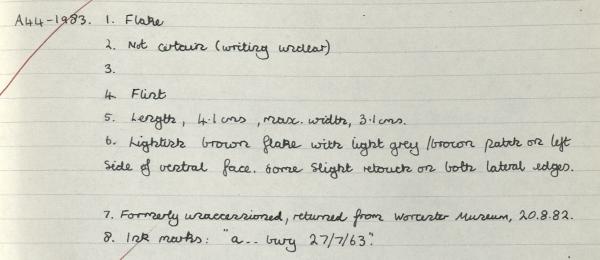 A44-1983. 1. Flake
2. Not certain (writing unclear)
3.
4. Flint
5. Length, 4.1 cms, max. width, 3.1 cms.
6. Lightish brown flake with light grey/brown patch on left
side of ventral face. Some slight retouch on both lateral edges.
7. Formerly unaccessioned, returned from Worcester Museum, 20.8.82.
8. Ink marks: "a.. bury 27/7/63".